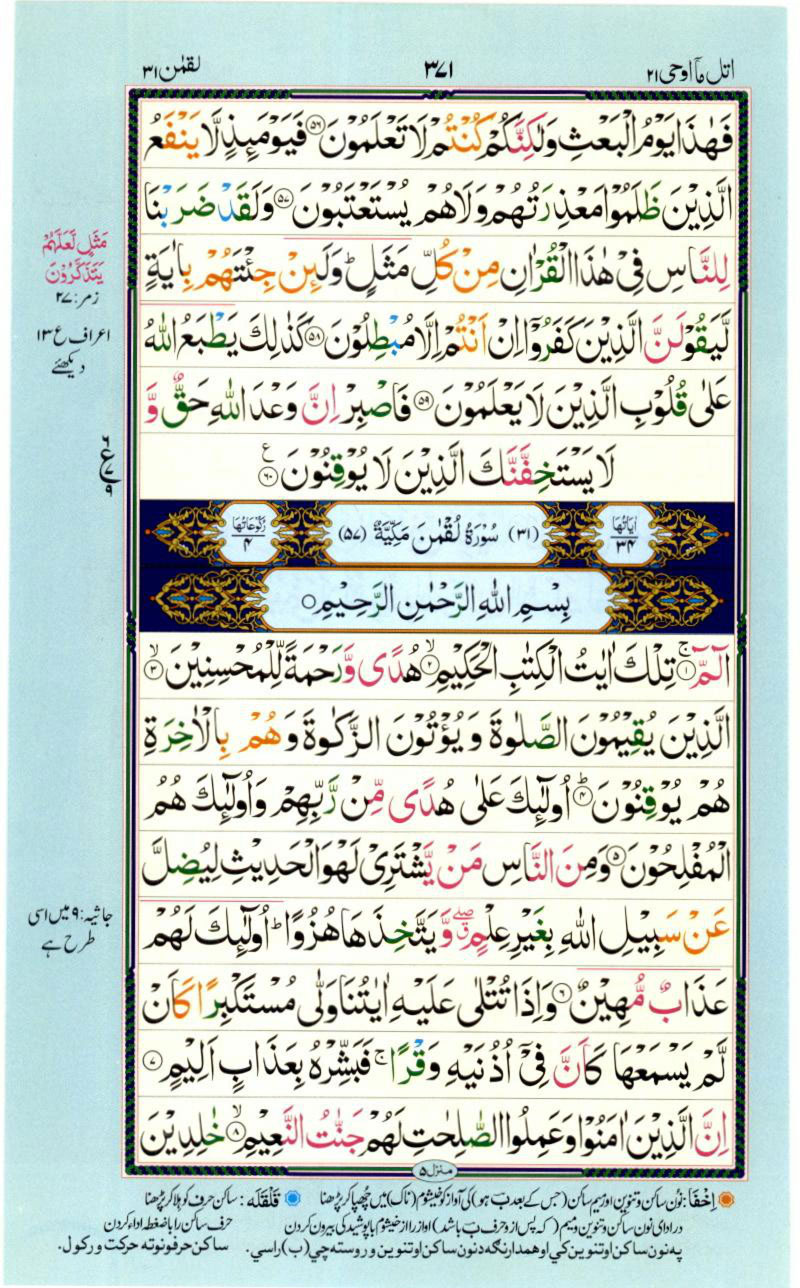 اتل ماۤ اوحی ۲۱
۳۷۱
لقمٰن ۳۱
فَهٰذَا يَوْمُ الْبَعْثِ وَلٰكِنَّكُمْ كُنْتُمْ لَا تَعْلَمُوْنَ ﴿۵۶﴾ فَيَوْمَئِذٍ لَّا يَنْفَعُ
الَّذِيْنَ ظَلَمُوْا مَعْذِرَتُهُمْ وَلَا هُمْ يُسْتَعْتَبُوْنَ ﴿۵۷﴾ وَلَقَدْ ضَرَبْنَا
لِلنَّاسِ فِیْ هٰذَا الْقُرْاٰنِ مِنْ كُلِّ مَثَلٍ ؕ وَلَئِنْ جِئْتَهُمْ بِاٰيَةٍ
لَّيَقُوْلَنَّ الَّذِيْنَ كَفَرُوْۤا اِنْ اَنْتُمْ اِلَّا مُبْطِلُوْنَ ﴿۵۸﴾ كَذٰلِكَ يَطْبَعُ اللّٰهُ
عَلٰی قُلُوْبِ الَّذِيْنَ لَا يَعْلَمُوْنَ ﴿۵۹﴾ فَاصْبِرْ اِنَّ وَعْدَ اللّٰهِ حَقٌّ وَّ
لَا يَسْتَخِفَّنَّكَ الَّذِيْنَ لَا يُوْقِنُوْنَ ﴿۶۰﴾ ع
مَثَلٍ لَّعَلَّهُمْ
يَتَذَكَّرُوْنَ
زمر: ۲۷
اعراف ع ۱۳
دیکھئے
۶
ع ۷
۹
اٰیَاتُهَا ۳۴
(۳۱) سُوْرَةُ لُقْمٰنَ مَكِّيَّةٌ (۵۷)
رُکُوْعَاتُهَا ۴
بِسْمِ اللّٰهِ الرَّحْمٰنِ الرَّحِيْمِ ۝
الٓمّٓ ﴿۱﴾ ۚ تِلْكَ اٰيٰتُ الْكِتٰبِ الْحَكِيْمِ ﴿۲﴾ ۙ هُدًی وَّرَحْمَةً لِّلْمُحْسِنِيْنَ ﴿۳﴾ ۙ
الَّذِيْنَ يُقِيْمُوْنَ الصَّلٰوةَ وَيُؤْتُوْنَ الزَّكٰوةَ وَهُمْ بِالْاٰخِرَةِ
هُمْ يُوْقِنُوْنَ ﴿۴﴾ ؕ اُولٰٓئِكَ عَلٰی هُدًی مِّنْ رَّبِّهِمْ وَاُولٰٓئِكَ هُمُ
الْمُفْلِحُوْنَ ﴿۵﴾ وَمِنَ النَّاسِ مَنْ يَّشْتَرِیْ لَهْوَ الْحَدِيْثِ لِيُضِلَّ
عَنْ سَبِيْلِ اللّٰهِ بِغَيْرِ عِلْمٍ ۖق وَّيَتَّخِذَهَا هُزُوًا ؕ اُولٰٓئِكَ لَهُمْ
عَذَابٌ مُّهِيْنٌ ﴿۶﴾ وَاِذَا تُتْلٰی عَلَيْهِ اٰيٰتُنَا وَلّٰی مُسْتَكْبِرًا كَاَنْ
لَّمْ يَسْمَعْهَا كَاَنَّ فِیْۤ اُذُنَيْهِ وَقْرًا ۚ فَبَشِّرْهُ بِعَذَابٍ اَلِيْمٍ ﴿۷﴾
اِنَّ الَّذِيْنَ اٰمَنُوْا وَعَمِلُوا الصّٰلِحٰتِ لَهُمْ جَنّٰتُ النَّعِيْمِ ﴿۸﴾ ۙ خٰلِدِيْنَ
جاثیہ: ۹ میں اسی
طرح ہے
منزل ۵
اِخْفَا: نُون ساکن و تنوین اور میم ساکن (جس کے بعد ب ہو) کی آواز کو خیشوم (ناک) میں چُھپا کر پڑھنا
قَلْقَلَه: ساکن حرف کو ہلا کر پڑھنا
در ادای نون ساکن و تنوین و میم (که پس از و حرف ب باشد) اواز را از خیشوم با پوشیدگی بیرون کردن
حرف ساکن را با ضغطه اداء کردن
په نون ساکن او تنوین کي او همدارنګه د نون ساکن او تنوین وروسته چي (ب) راسي.
ساکن حرفونو ته حرکت ورکول.